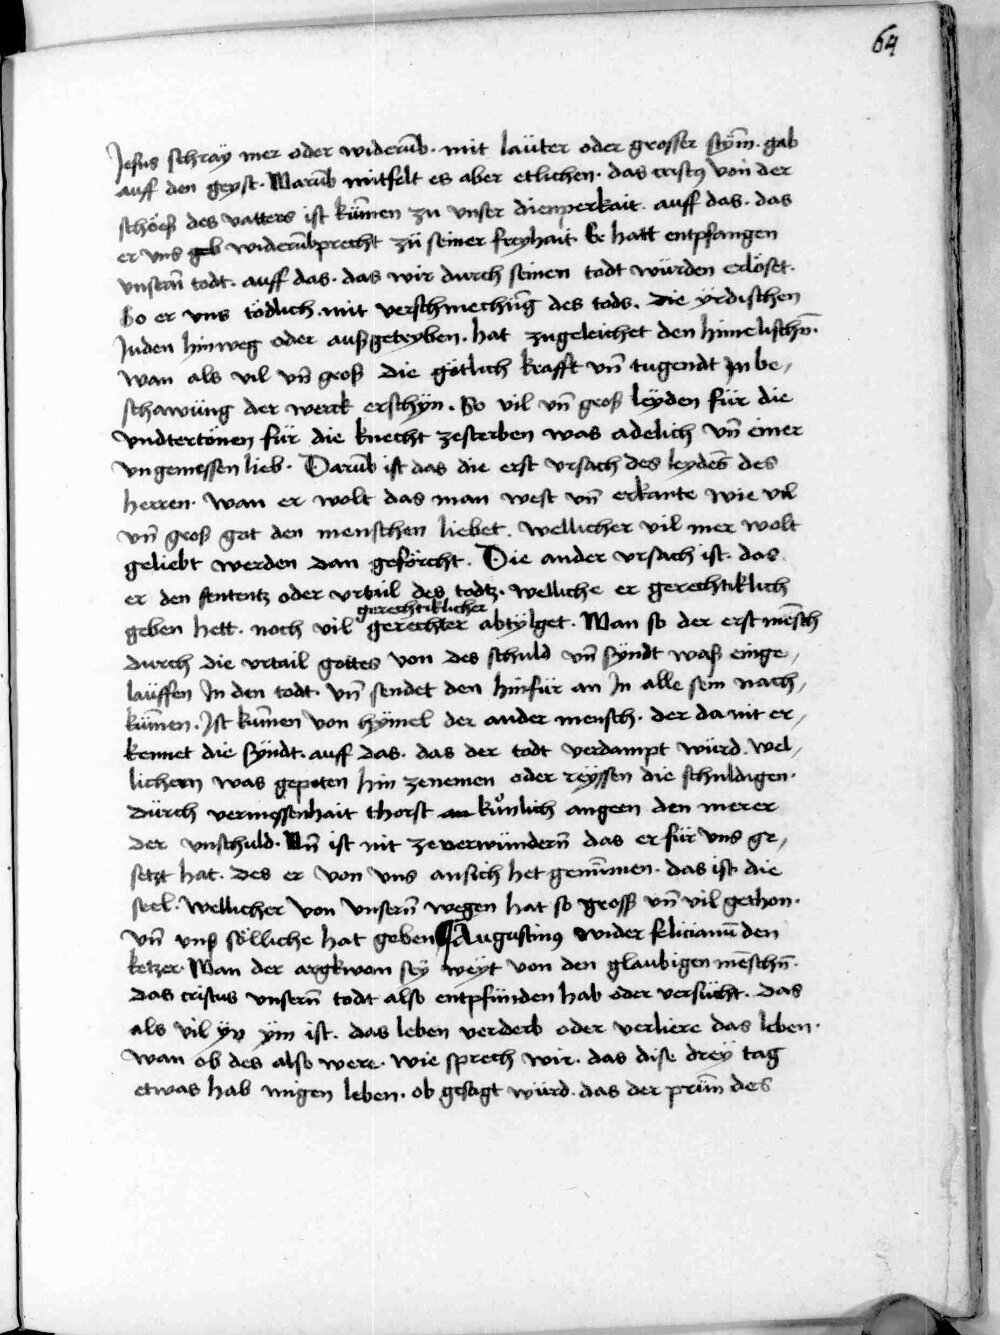 64
Jesus schray mer oder widerūb · mit lauter oder grosser stȳm · gab
auff den geyst · Warūb mitfelt es aber etlichen · das cristꝰ von der
schöeß des vatters ist kūmen zu vnser dienperkait · auff das · das
er vns geb widerūbprecht zü seiner freyhait · Er hatt entpfangen
vnsern̄ todt · auff das · das wir durch seinen todt würden erlöset ·
So er vns tödlich · mit verschmechūg des tods · die yrdischen
Juden hinweg oder außgetryben · hat zugeleichet den himelischn̄ ·
wan als vil vn̄ groß die götlich krafft vn̄ tugendt jn be⸗
schawüng der werck erschyn · So vil vn̄ groß leyden für die
vndtertönen für die knecht zesterben was adelich vn̄ einer
vngemessen lieb · Darūb ist das die erst vrsach des leydēs des
herren · wan er wolt das man west vn̄ erkante wie vil
vn̄ groß got den menschen liebet · wellicher vil mer wolt
geliebt werden dan geförcht · Die ander vrsach ist · das
er den sententz oder vrtail des todtz · welliche er gerechtiklich
gerechtiklicher
geben hett · noch vil gerechter abtylget · Wan so der erst mēsch
durch die vrtail gottes von des schuld vn̄ syndt waß einge⸗
lauffen Jn den todt · vn̄ sendet den hinfür an Jn alle sein nach⸗
kūmen · Jst kūmen von hymel der ander mensch · der da nit er⸗
kennet die syndt · auff das · das der todt verdampt würd · wel⸗
lichem was gepoten hin zenemen oder reyssen die schuldigen ·
dürch vermessenhait thorst an künlich angeen den merer
der vnschuld · Vn̄ ist nit zeverwündern̄ das er für vns ge⸗
setzt hat · des er von vns ansich het genūmen · das ist die
seel · wellicher von vnsern̄ wegen hat so grosß vn̄ vil gethon ·
vn̄ vnß sölliche hat geben ¶ Augustinꝰ wider felicianū den
ketzer · Wan der argkwan sey weyt von den glaubigen mēschn̄ ·
das cristus vnsern̄ todt also entpfünden hab oder versücht · das
als vil yn ym ist · das leben verderb oder verliere das leben ·
wan ob des also were · wie sprech wir · das dise drey tag
etwas hab mügen leben · ob gesagt würd · das der prūn des